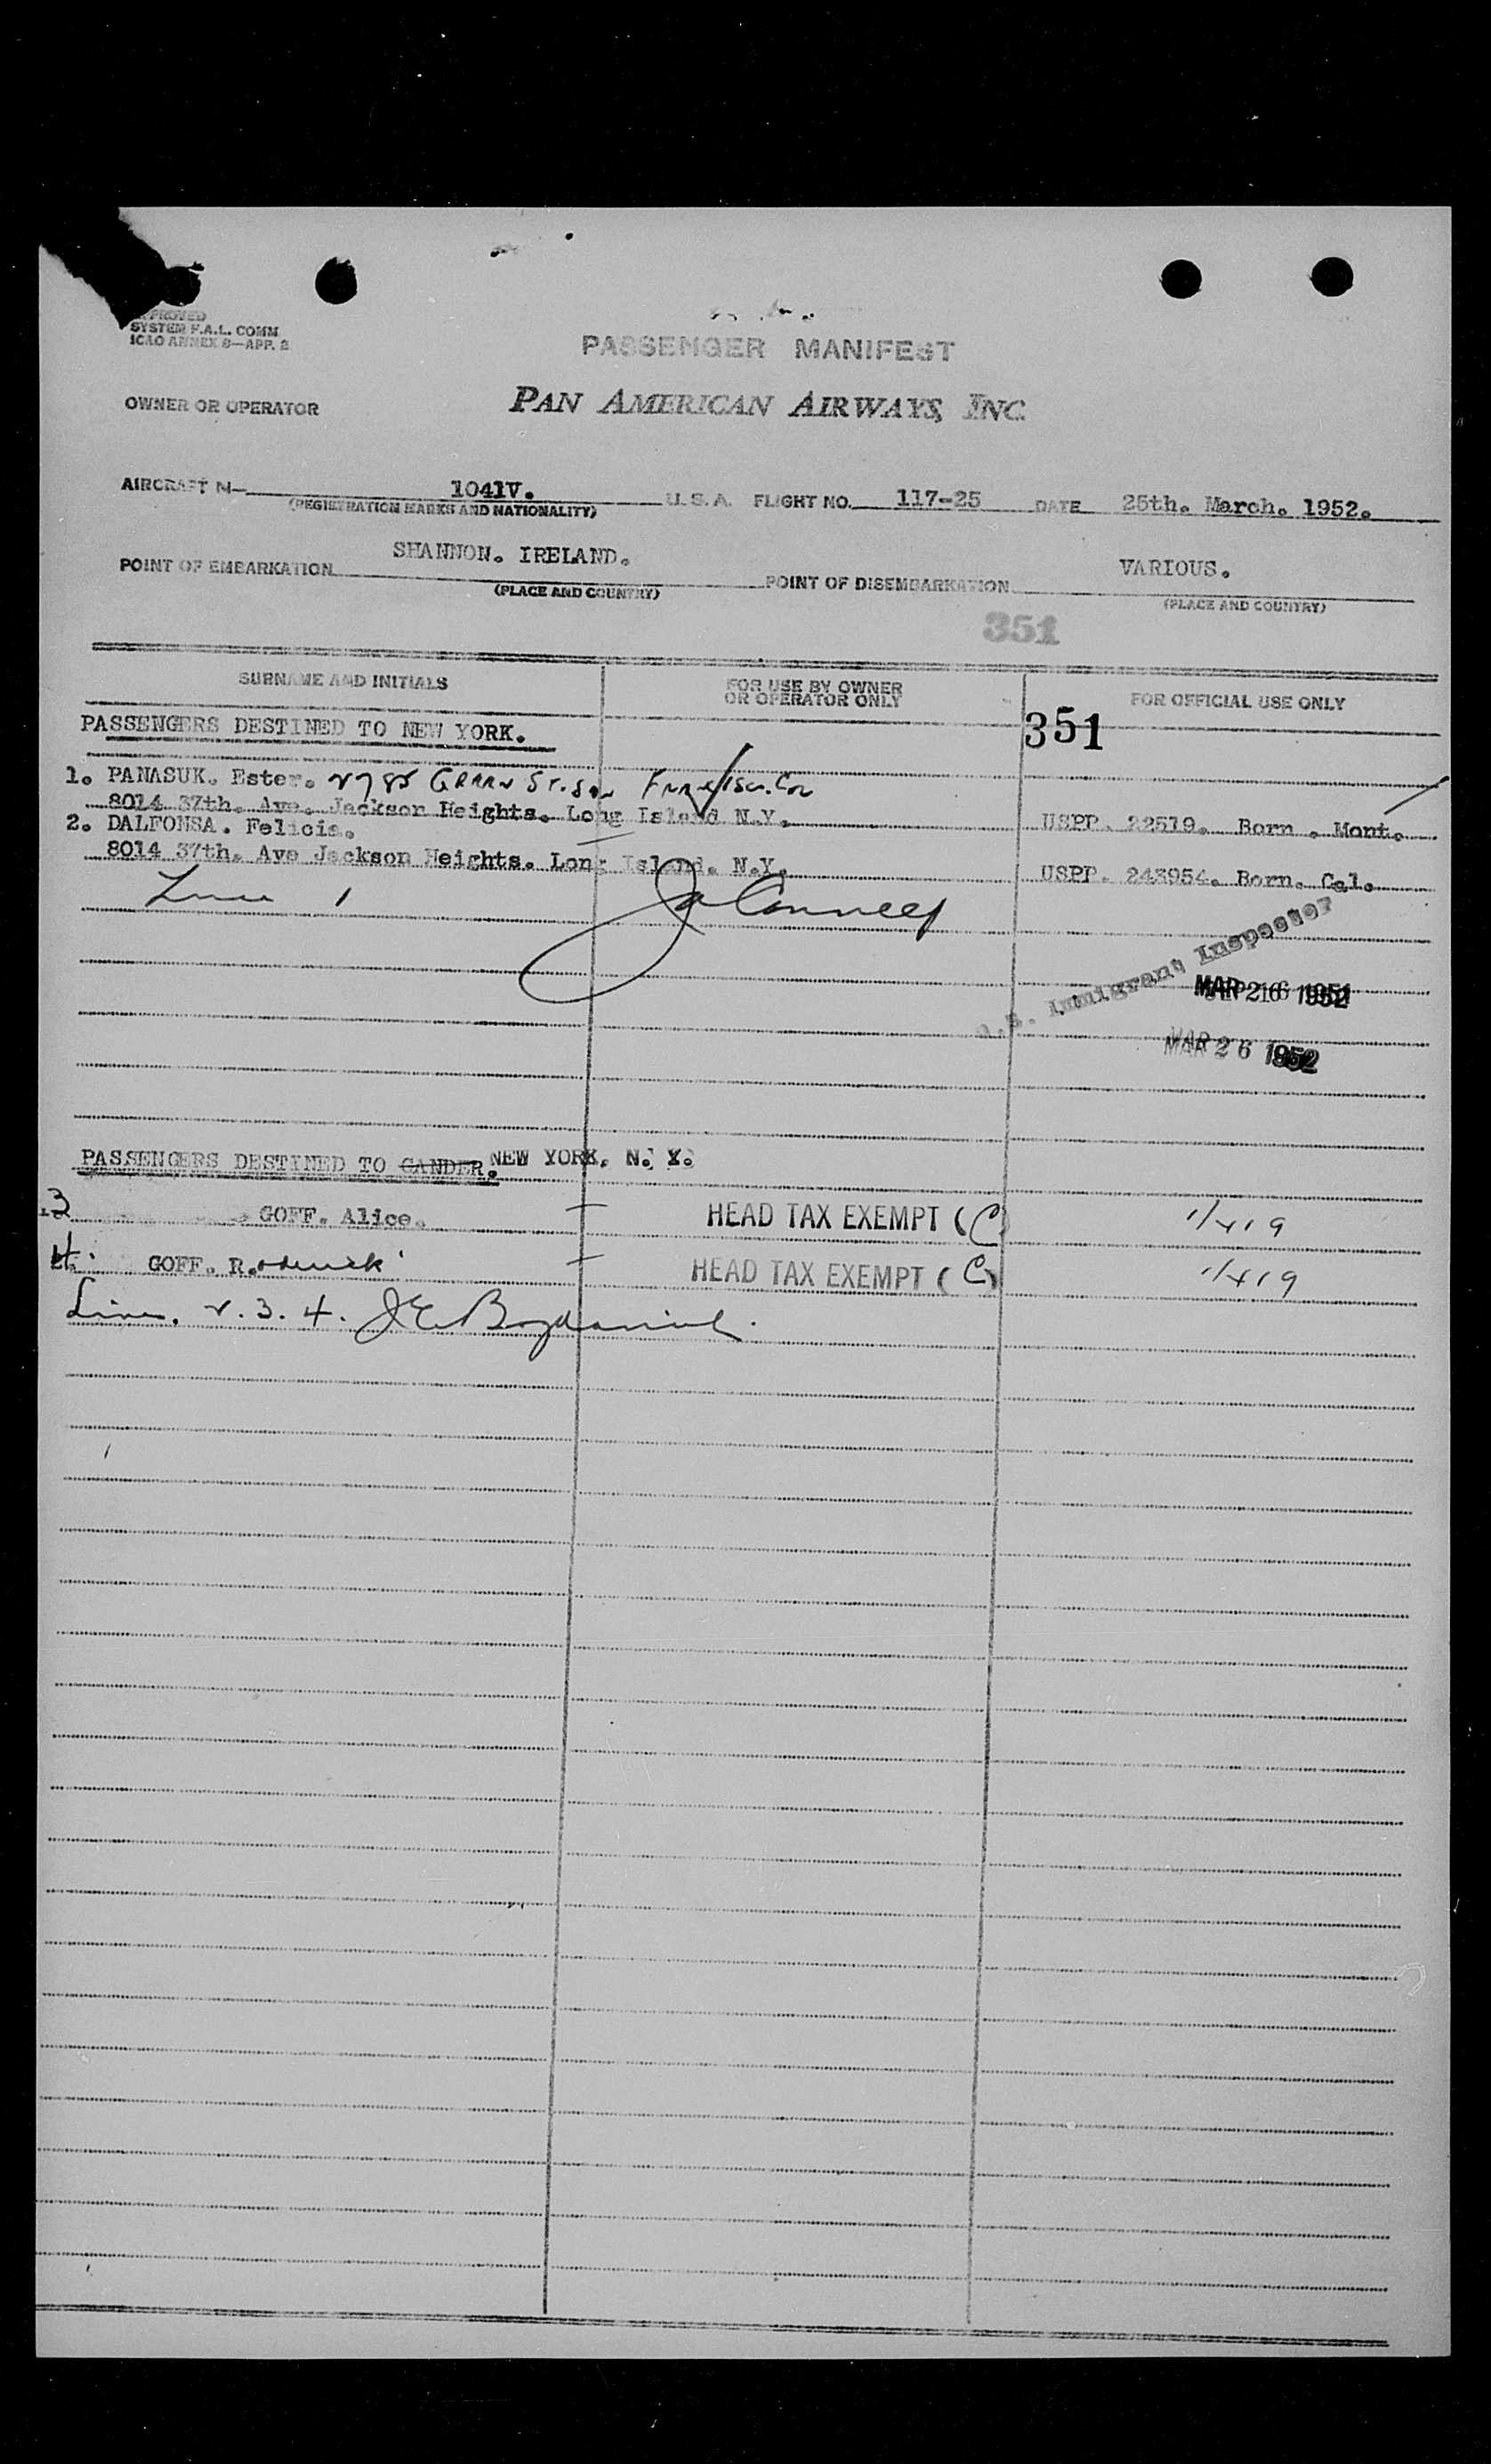 APPROVED
SYSTEM F.A.L. COMM
ICAO ANNEX 8—APP. 2
PASSENGER MANIFEST
OWNER OR OPERATOR PAN AMERICAN AIRWAYS, INC.
AIRCRAFT N— 1041V. U.S.A. FLIGHT NO. 117-25 DATE 25th. March. 1952.
(REGISTRATION MARKS AND NATIONALITY)
POINT OF EMBARKATION SHANNON. IRELAND. POINT OF DISEMBARKATION VARIOUS.
(PLACE AND COUNTRY) (PLACE AND COUNTRY)
351
SURNAME AND INITIALS FOR USE BY OWNER OR OPERATOR ONLY FOR OFFICIAL USE ONLY
PASSENGERS DESTINED TO NEW YORK. 351
1. PANASUK. Ester. 2785 St. San
8014 37th. Ave. Jackson Heights. Long Island N.Y. USPP. 22519. Born. Mont.
2. DALFONSA. Felicia.
8014 37th. Ave Jackson Heights. Long Island. N.Y. USPP. 243954. Born. Cal.
Line 1
U.S. Immigrant Inspector
MAR 26 1952
MAR 26 1952
PASSENGERS DESTINED TO GANDER. NEW YORK. N. Y.
3 GOFF. Alice. HEAD TAX EXEMPT (C)
4. GOFF. Roderick HEAD TAX EXEMPT (C)
Lines. 2. 3. 4.